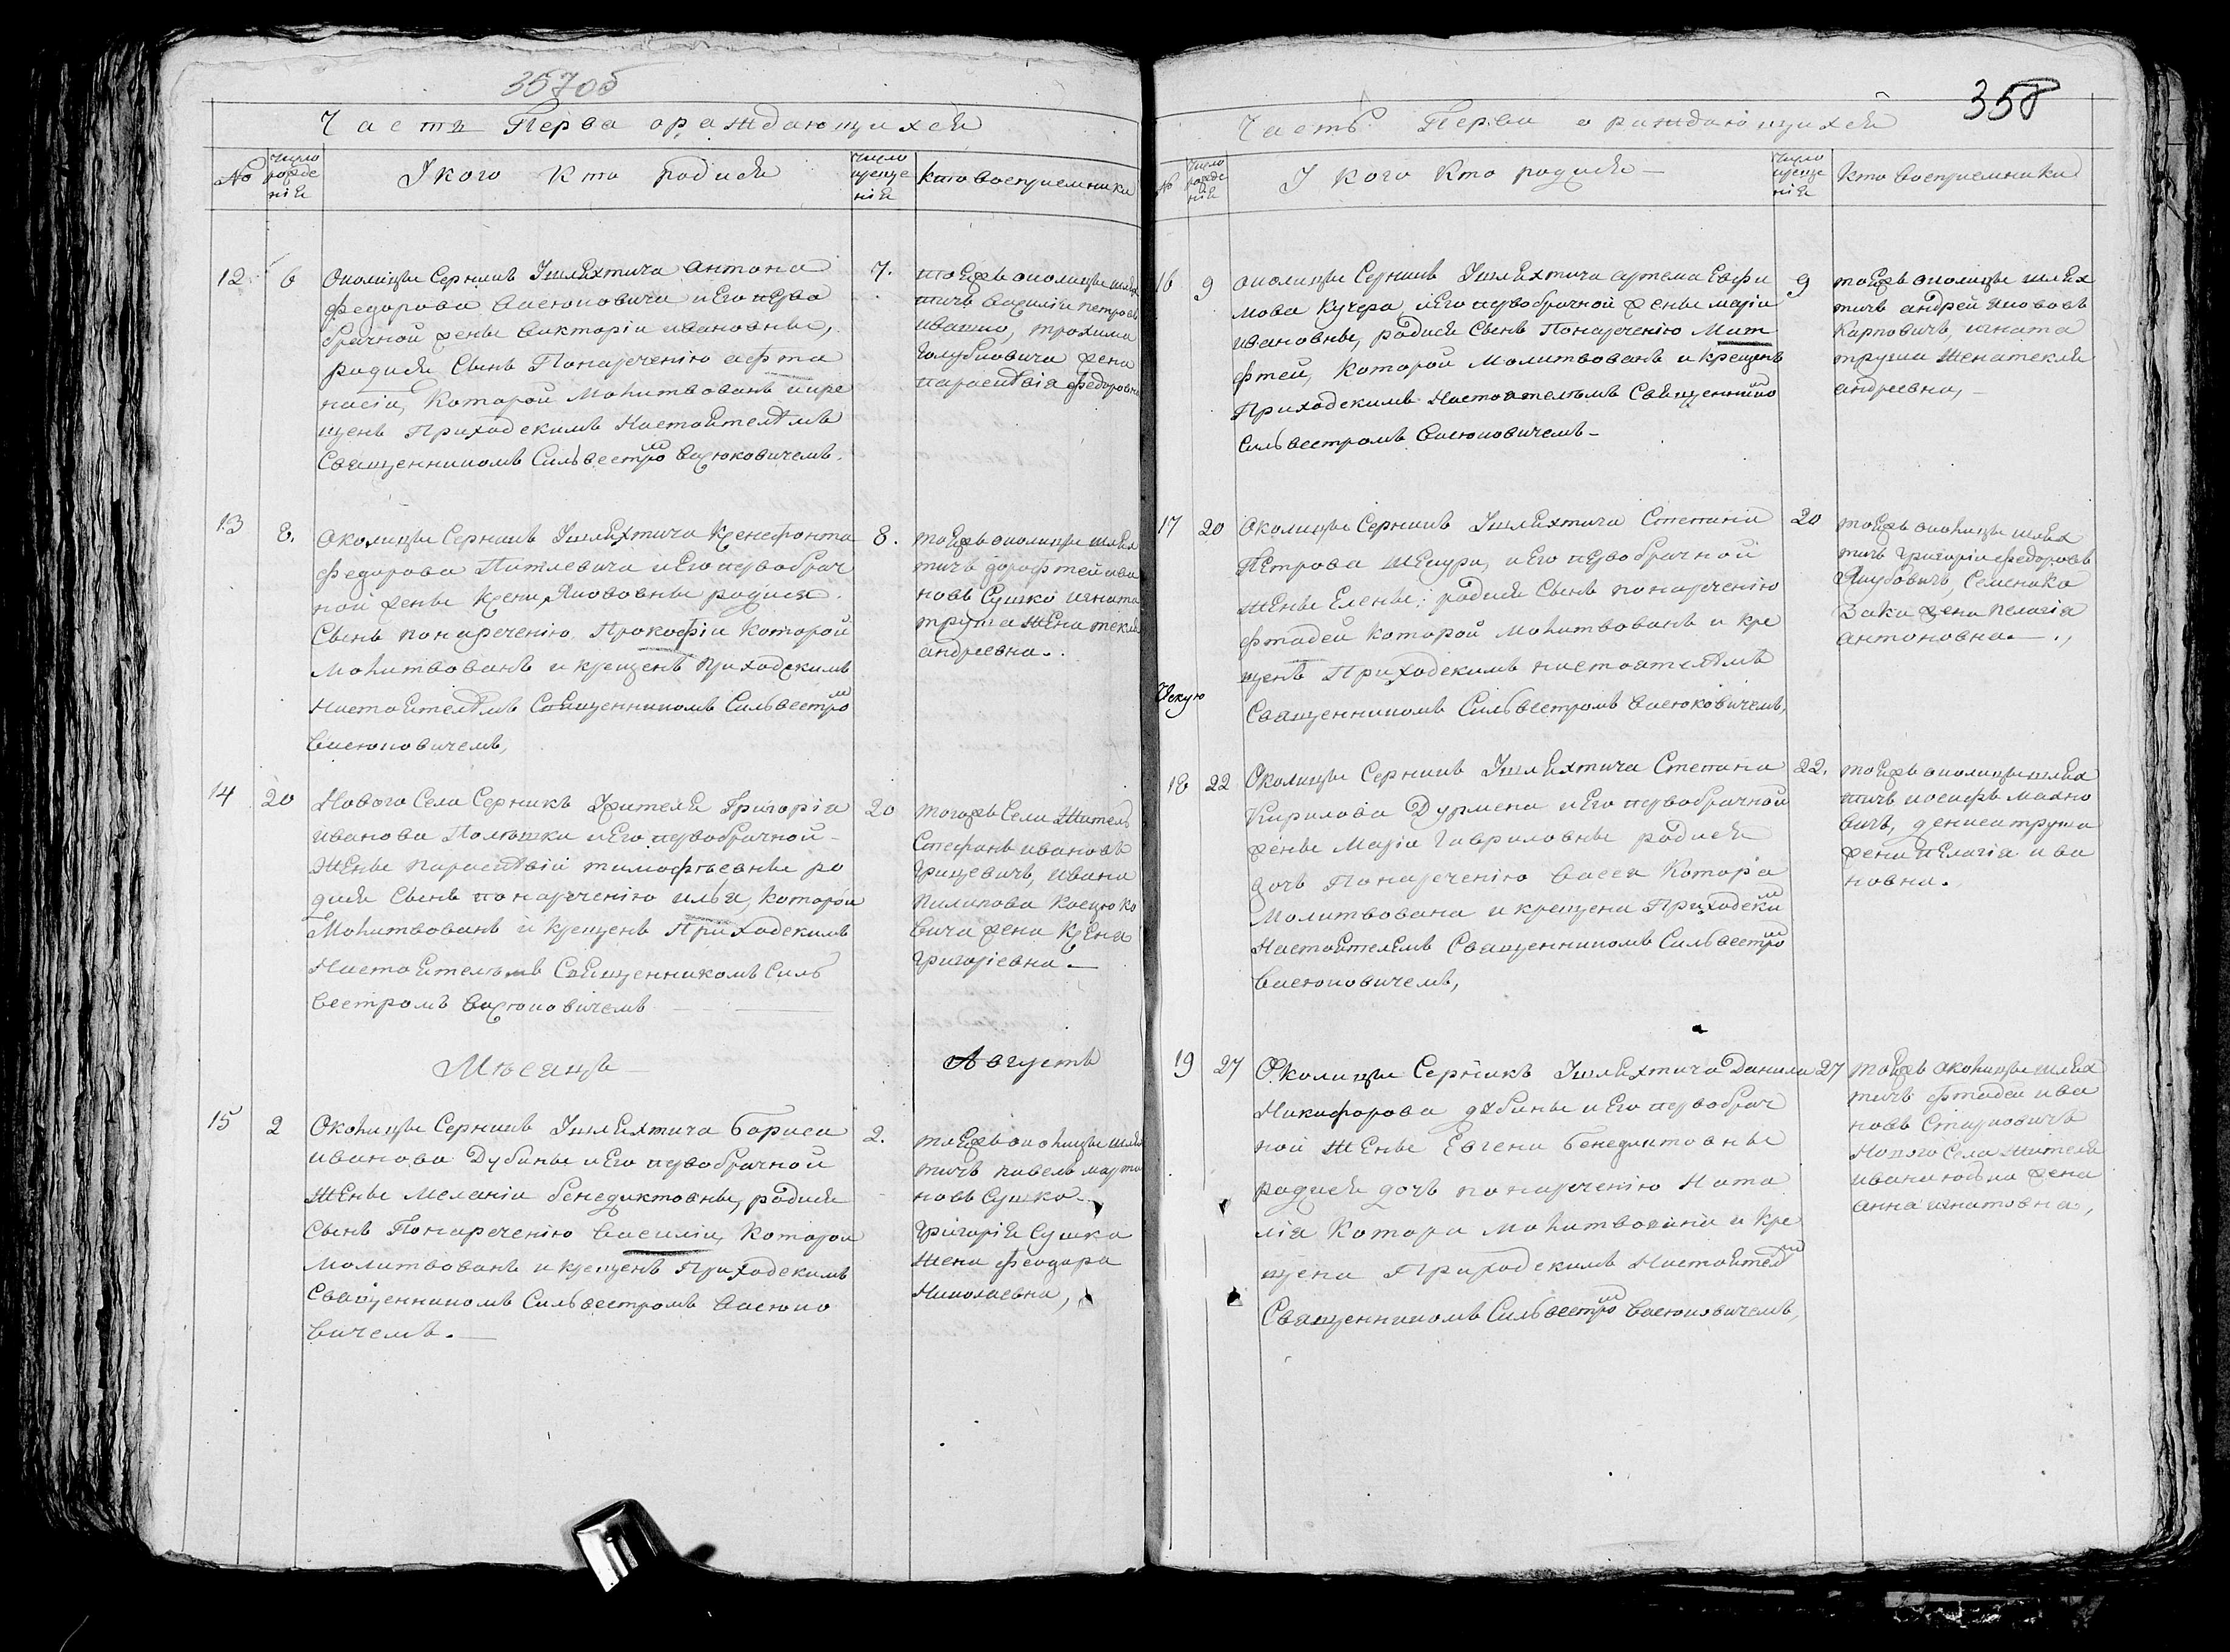 357об
Часть Перва ораждающихся
№
число рожде нія
У кого Кто родися
число креще нія
кто восприемники
12
6
Околицы Серникъ Ушляхтича Антона
федорова Васюковича и Его перво
брачной жены Викторіи ивановны,
родися Сынъ Понаречению афта
насіи, Которой Молитвованъ и кре
щенъ Приходскимъ Настоятелемъ
Священникомъ Сильвестромъ Васюковичемъ.
7.
тоежъ околицы шлях
тичъ василіи петровъ
ивашко, трохима
Голубовича жена
параскѣвія федоровна
13
8.
Околицы Серникъ Ушляхтича Ксенефонта
федорова Питлевича и Его первобрач
ной жены Ксени Якововны родися
Сынъ понаречению Прокофіи Которой
Молитвованъ и крещенъ Приходскимъ
Настоятелемъ Священникомъ Сильвестромъ
Васюковичемъ,
8.
тоежъ околицы шлях
тичъ дорофтей ива
новъ Сушко игната
труша жена текля
андреевна.
14
20
Нового Села Серникъ Ужителя Григорія
иванова Полюшки и Его первобрачной
Жены параскѣвіи тимофѣевны ро
дися Сынъ понаречению илья, Которой
Молитвованъ и крещенъ Приходскимъ
Настоятелемъ Священникомъ Силь
вестромъ Васюковичемъ
20
тогожъ Села Житель
Стефанъ ивановъ
Грицевичъ, ивана
пилипова Косцюко
вича жена Ксеня
Григоріевна
Мѣсяцъ
Августъ
15
2
Околицы Серникъ Ушляхтича бориса
иванова Дубины и Его первобрачной
Жены Меланіи бенедиктовны, родися
Сынъ Понаречению Василіи, Которои
Молитвованъ и крещенъ Приходскимъ
Священникомъ Сильвестромъ Васюко
вичемъ.
2.
тоежъ околицы шлях
тичъ павелъ марти
новъ Сушко
Григорія Сушка
Жена феодора
Николаевна,
358
Часть Перва о раждающихся
№
число рожде нія
У кого Кто родися
число креще нія
кто восприемники
16
9
околицы Серникъ Ушляхтича артема Евфи
мова Кучера, и Его первобрачной жены маріи
ивановны, родися Сынъ Понаречению Мат
фтей, Которой Молитвованъ и крещенъ
Приходскимъ Настоятелемъ Священникомъ
Сильвестромъ Васюковичемъ
9
тоежъ околицы шлях
тичъ андрей яковъ
Карповичъ, игната
труша Жена текля
андреевна,
17
20
Околицы Серникъ Ушляхтича Степана
Петрова и Его первобрачной
Жены Елены, родися Сынъ понаречению
фтадей Которой Молитвованъ и кре
щенъ Приходскимъ настоятелемъ
Священникомъ Сильвестромъ Васюковичемъ,
20
тоежъ околицы шлях
тичъ Григоріи федоровъ
Якубовичъ, Семенака
Заки жена пелагія
антоновна.
18
22
Околицы Серникъ Ушляхтича Степана
Кирилова Дурмена и Его первобрачной
жены Маріи Гавриловны родися
дочъ Понаречению Васса Котора
Молитвована и крещена Приходскимъ
Настоятелемъ Священникомъ Сильвестромъ
Васюковичемъ,
22.
тоежъ околицы шлях
тичъ иосифъ махно
вичъ, дениса труша
жена пелагія ива
новна.
19
27
Околицы Серникъ Ушляхтича Данила
Никифорова дубины и Его первобрач
ной Жены Евгени бенедиктовны
родися дочъ понаречению Ната
лія Котора Молитвована и кре
щена Приходскимъ Настоятелемъ
Священникомъ Сильвестромъ Васюковичемъ,
27
тоежъ околицы шлях
тичъ фтадеи ива
новъ
Нового Села Жителя
ивана жена
анна игнатовна,